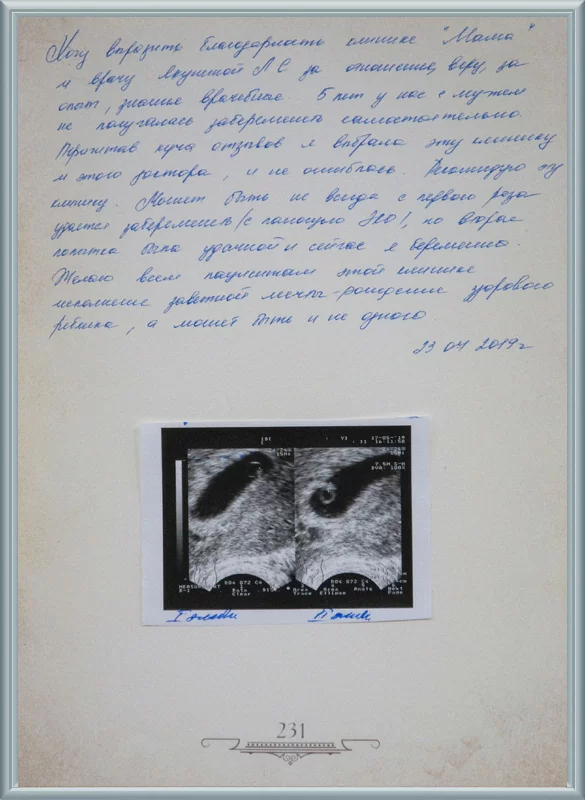 Хочу выразить благодарность клинике "Мама"
и врачу Якушиной Л С за отношение, веру, за
опыт, знание врачебные. 5 лет у нас с мужем
не получалась забеременеть самостоятельно.
Прочитав куча отзывов я выбрала эту клинику
и этого доктора, и не ошиблась. Рекомендую эту
клинику. Может быть не всегда с первого раза
удается забеременеть (с помощью ЭКО), но вторая
попытка была удачной и сейчас я беременна.
Желаю всем пациенткам этой клинике
исполнение заветной мечты - рождение здорового
ребенка, а может быть и не одного.
23 04 2019г
V3 17-05-19
16:11:50
7.5M S-H
DVA: 100%
R04 G72 C4 R04 G72 C4
Clear Trace Ellipse Page
231